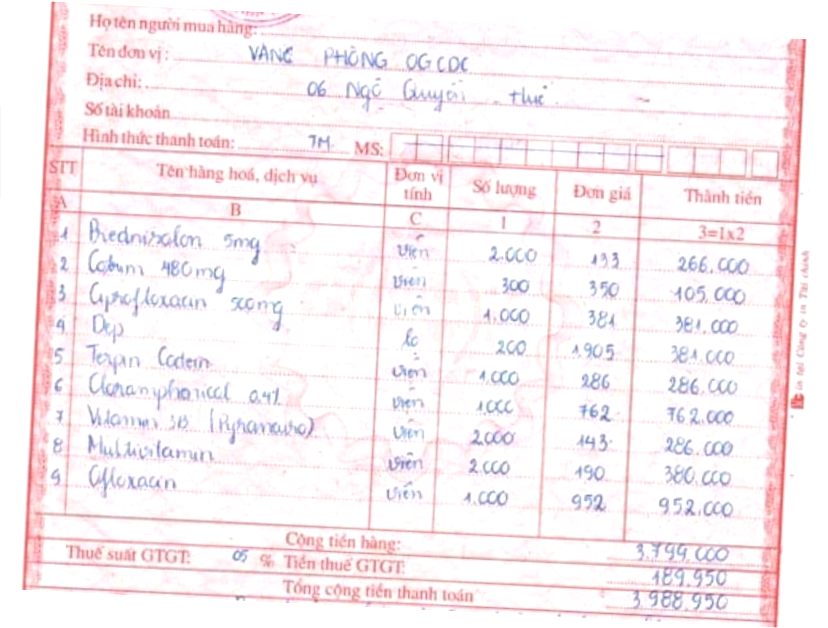 Họ tên người mua hàng:
Tên đơn vị: VĂNG PHÒNG OGCDC
Địa chỉ: 06 Ngô Quyền Huế
Số tài khoản
Hình thức thanh toán: TM. MS:
STT Tên hàng hoá, dịch vụ Đơn vị tính Số lượng Đơn giá Thành tiền
A B C 1 2 3=1x2
1 Prednisolon 5mg viên 2.000 133 266.000
2 Cotrim 480mg viên 300 350 105.000
3 Ciprofloxacin 500mg viên 1.000 381 381.000
4 Dep lọ 200 1.905 381.000
5 Terpin Codein viên 1.000 286 286.000
6 Cloramphenicol 0.4% viên 1.000 762 762.000
7 Vitamin 3B viên 2000 143 286.000
8 Multivitamin viên 2.000 190 380.000
9 Ofloxacin viên 1.000 952 952.000
Cộng tiền hàng: 3.799.000
Thuế suất GTGT: 05 % Tiền thuế GTGT: 189.950
Tổng cộng tiền thanh toán 3.988.950
in tại Công ty in Tài chính